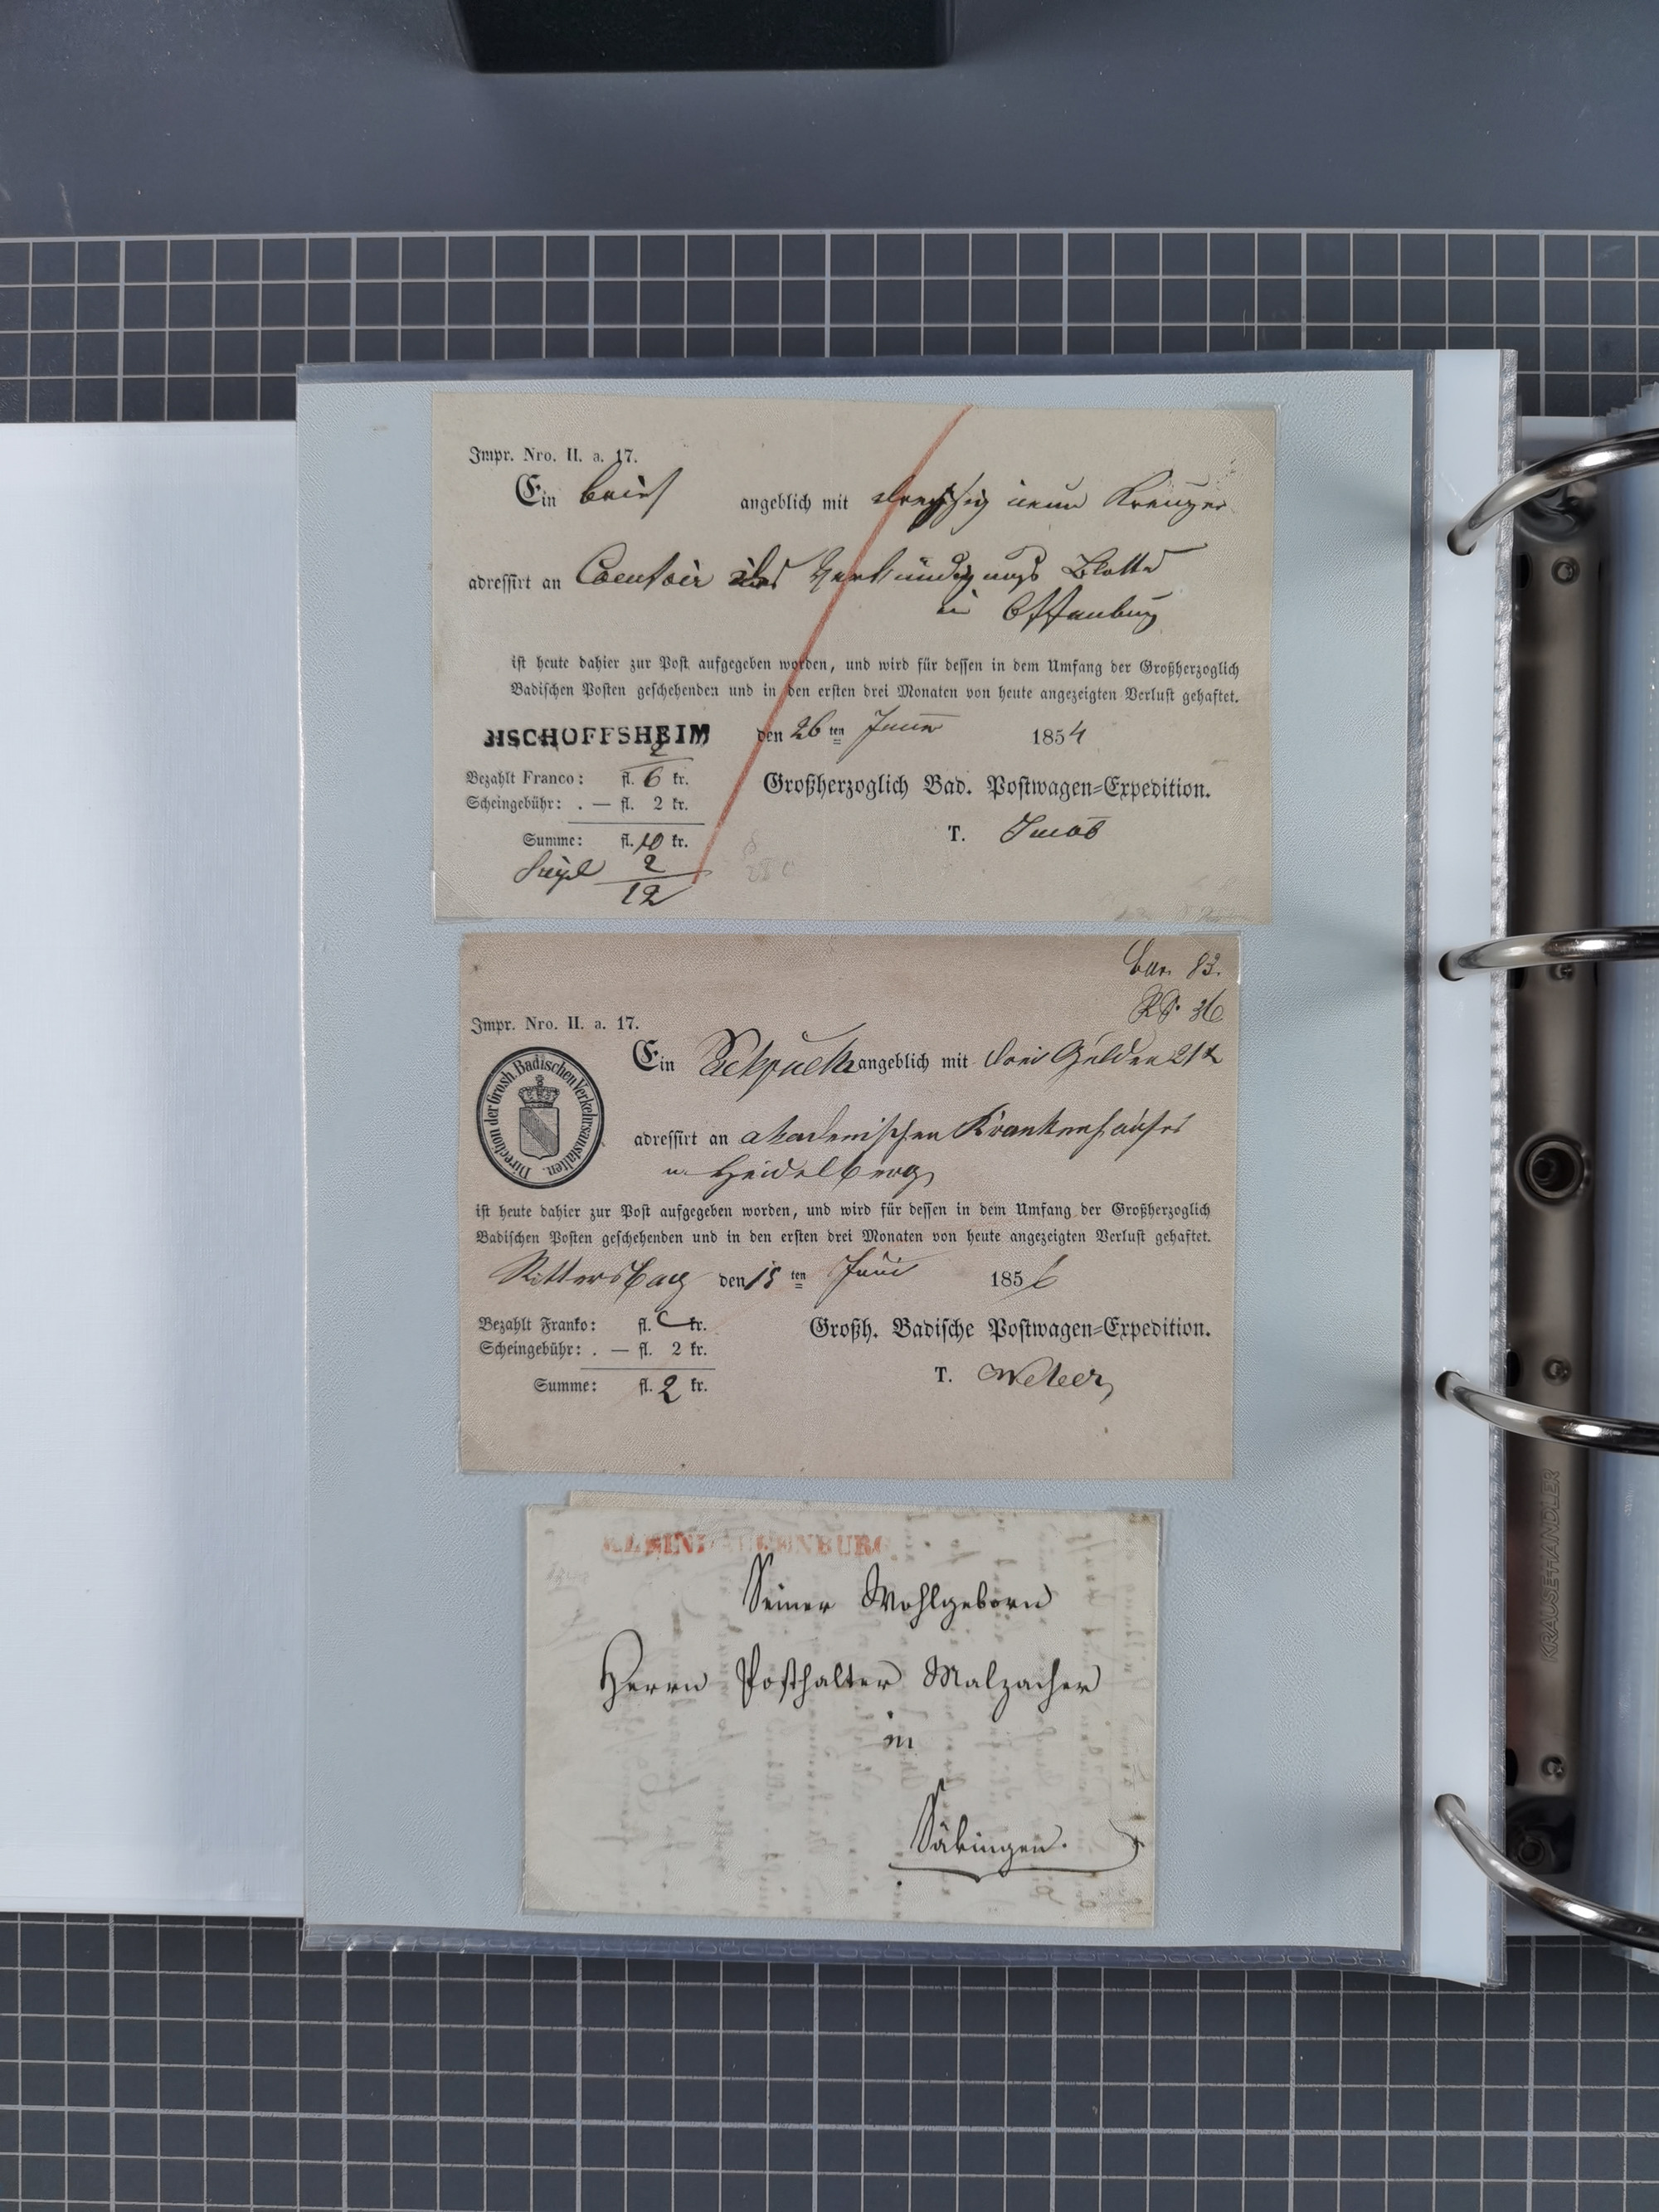 Impr. Nro. II. a. 17.
Ein brief angeblich mit dreyßig neun Kreuzer
adressirt an Comtoir des Verkündigungs Blatts
in Offenburg
ist heute dahier zur Post aufgegeben worden, und wird für dessen in dem Umfang der Großherzoglich
Badischen Posten geschehenden und in den ersten drei Monaten von heute angezeigten Verlust gehaftet.
BISCHOFFSHEIM den 26 ten Juni 1854
2
Bezahlt Franco: fl. 6 kr.
Scheingebühr: . — fl. 2 kr.
Großherzoglich Bad. Postwagen=Expedition.
Summe: fl. 10 kr.
T. Jacob
2
12
Bar. 83.
36
Impr. Nro. II. a. 17.
Direction der Grosh. Badischen Verkehrsanstalten.
Ein angeblich mit drei Gulden 21 x
adressirt an akademischen Krankenhauses
Heidelberg
ist heute dahier zur Post aufgegeben worden, und wird für dessen in dem Umfang der Großherzoglich
Badischen Posten geschehenden und in den ersten drei Monaten von heute angezeigten Verlust gehaftet.
Rittersbach den 15 ten Juni 1856
Bezahlt Franko: fl. kr.
Scheingebühr: . — fl. 2 kr.
Großh. Badische Postwagen=Expedition.
Summe: fl. 2 kr.
T. Weber
Seiner Wohlgeborn
Herrn Posthalter Malzacher
in
Säkingen.
KRAUSE HÄNDLER